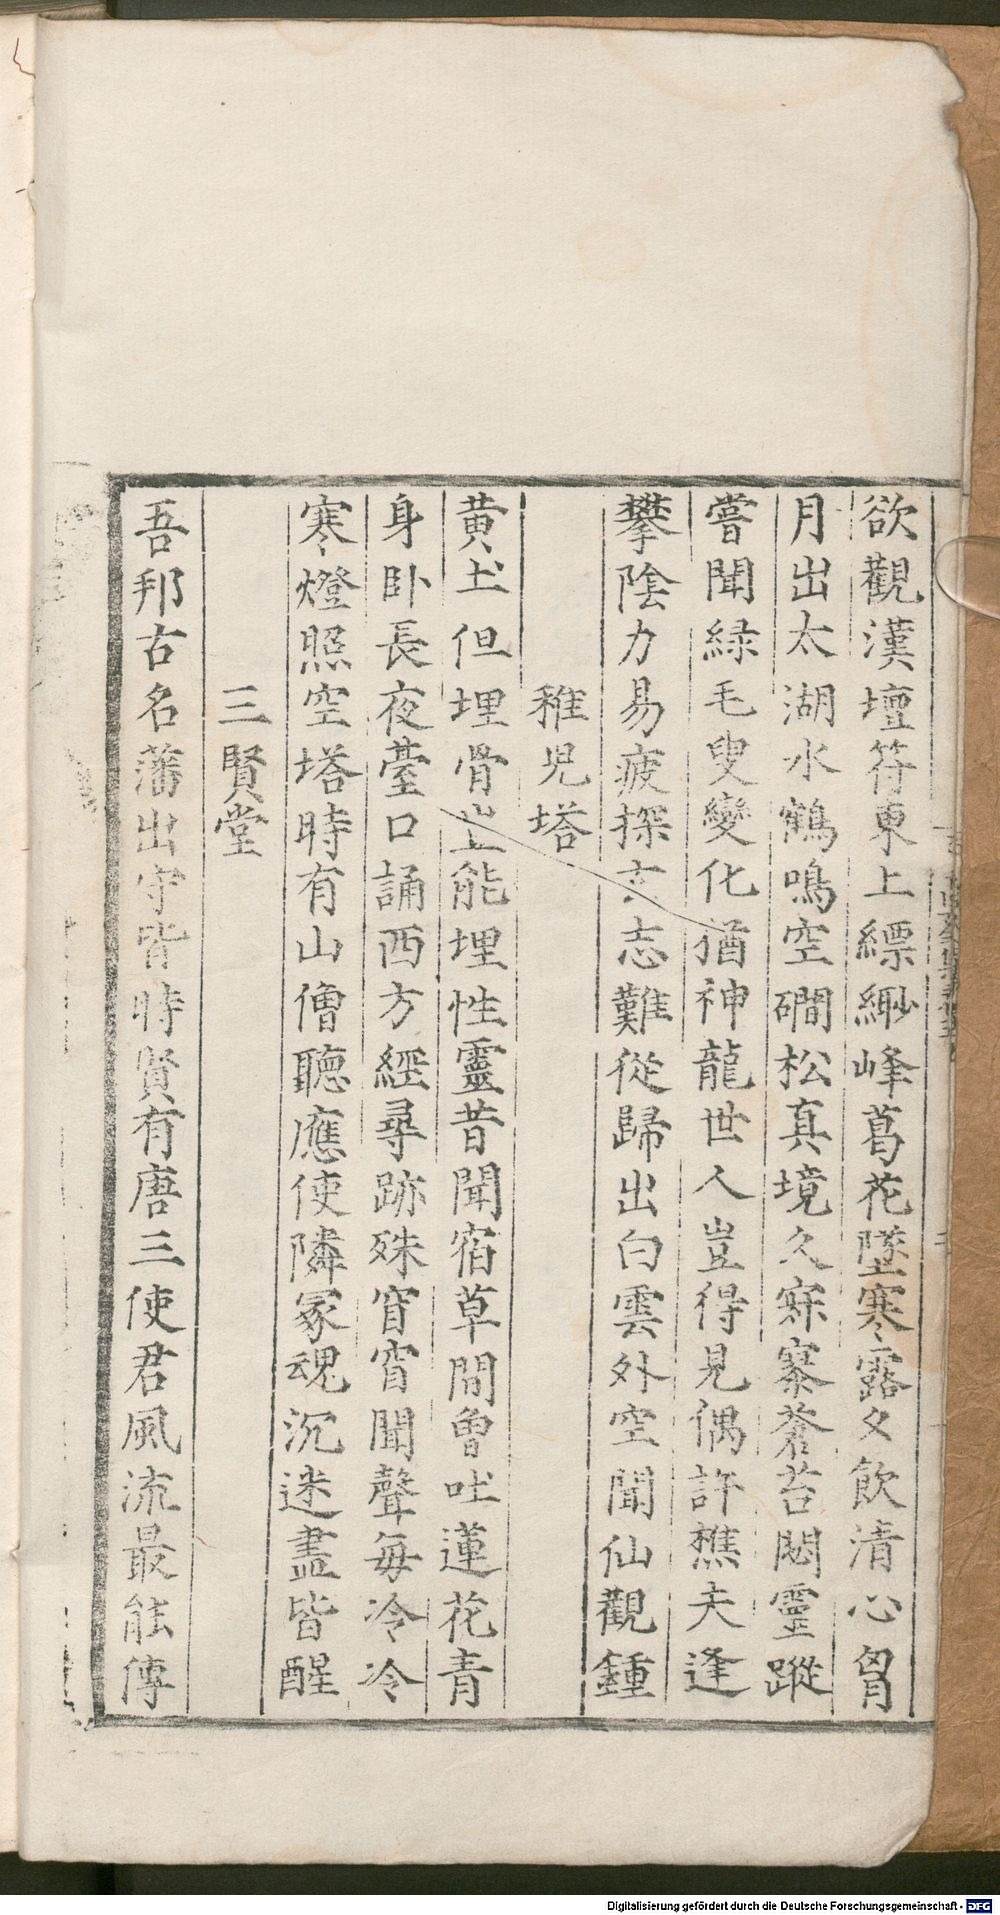 欲觀漢壇符東上縹緲峰葛花墜寒露夕飲清心胷
月出太湖水鶴鳴空磵松真境久寂寥蒼苔閟靈蹤
嘗聞綠毛叟變化猶神龍世人豈得見偶許樵夫逢
攀陰力易疲探玄志難從歸出白雲外空聞仙觀鍾
稚児塔
黄土但埋骨豈能埋性靈昔聞宿草間曾吐蓮花青
身卧長夜臺口誦西方經尋跡殊窅窅聞聲每冷冷
寒燈照空塔時有山僧聽應使隣冢魂沉迷盡皆醒
三賢堂
吾邦古名藩出守皆時賢有唐三使君風流最能傳
Digitalisierung gefördert durch die Deutsche Forschungsgemeinschaft - DFG